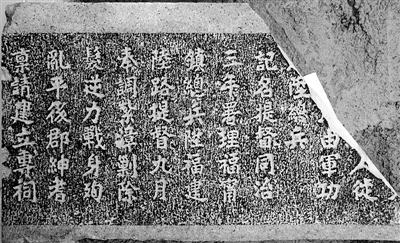 由軍功
陸總兵
記名提督同治
三年署理福甯
鎮總兵陞福建
陸路提督九月
奉調漳剿除
髮逆力戰身殉
亂平後郡紳耆
稟請建立專祠